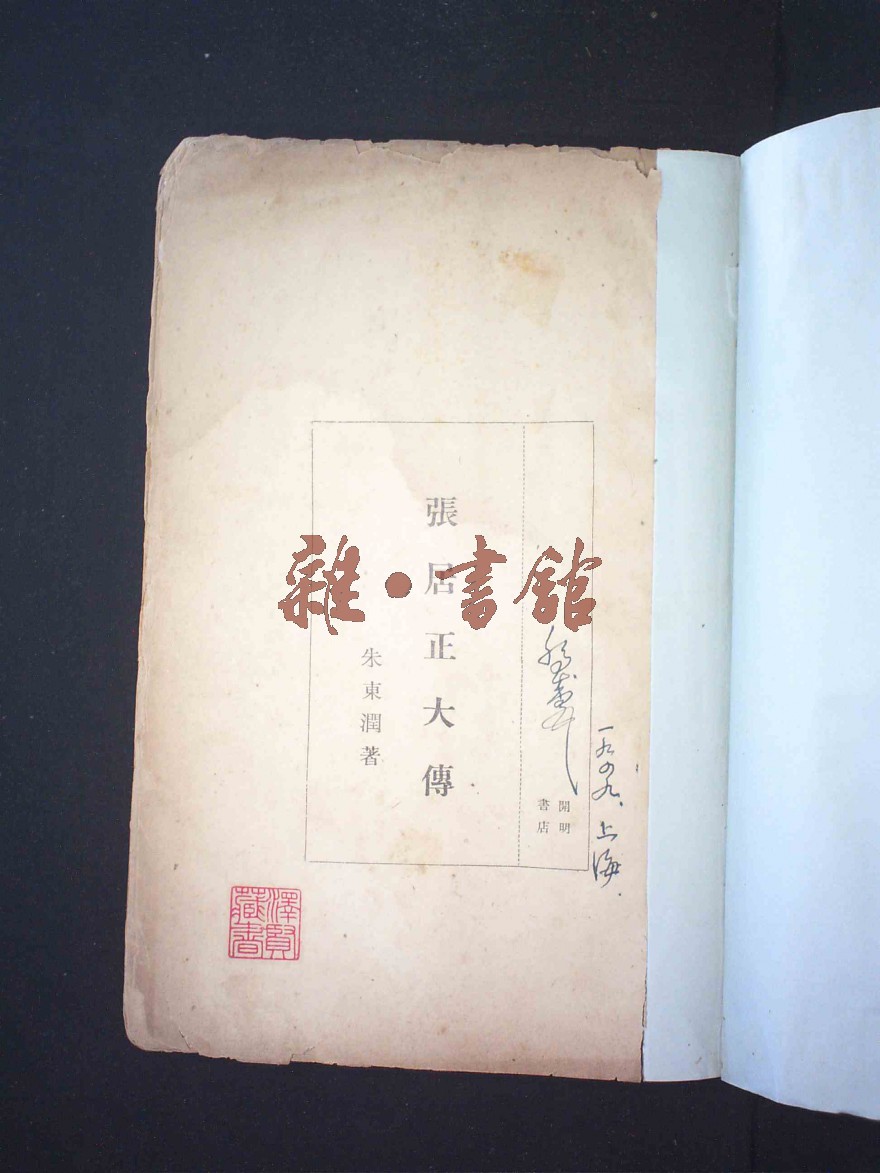 張居正大傳
朱東潤著
開明
書店
一九四九、上海.
澤賢
藏書
雜·書館